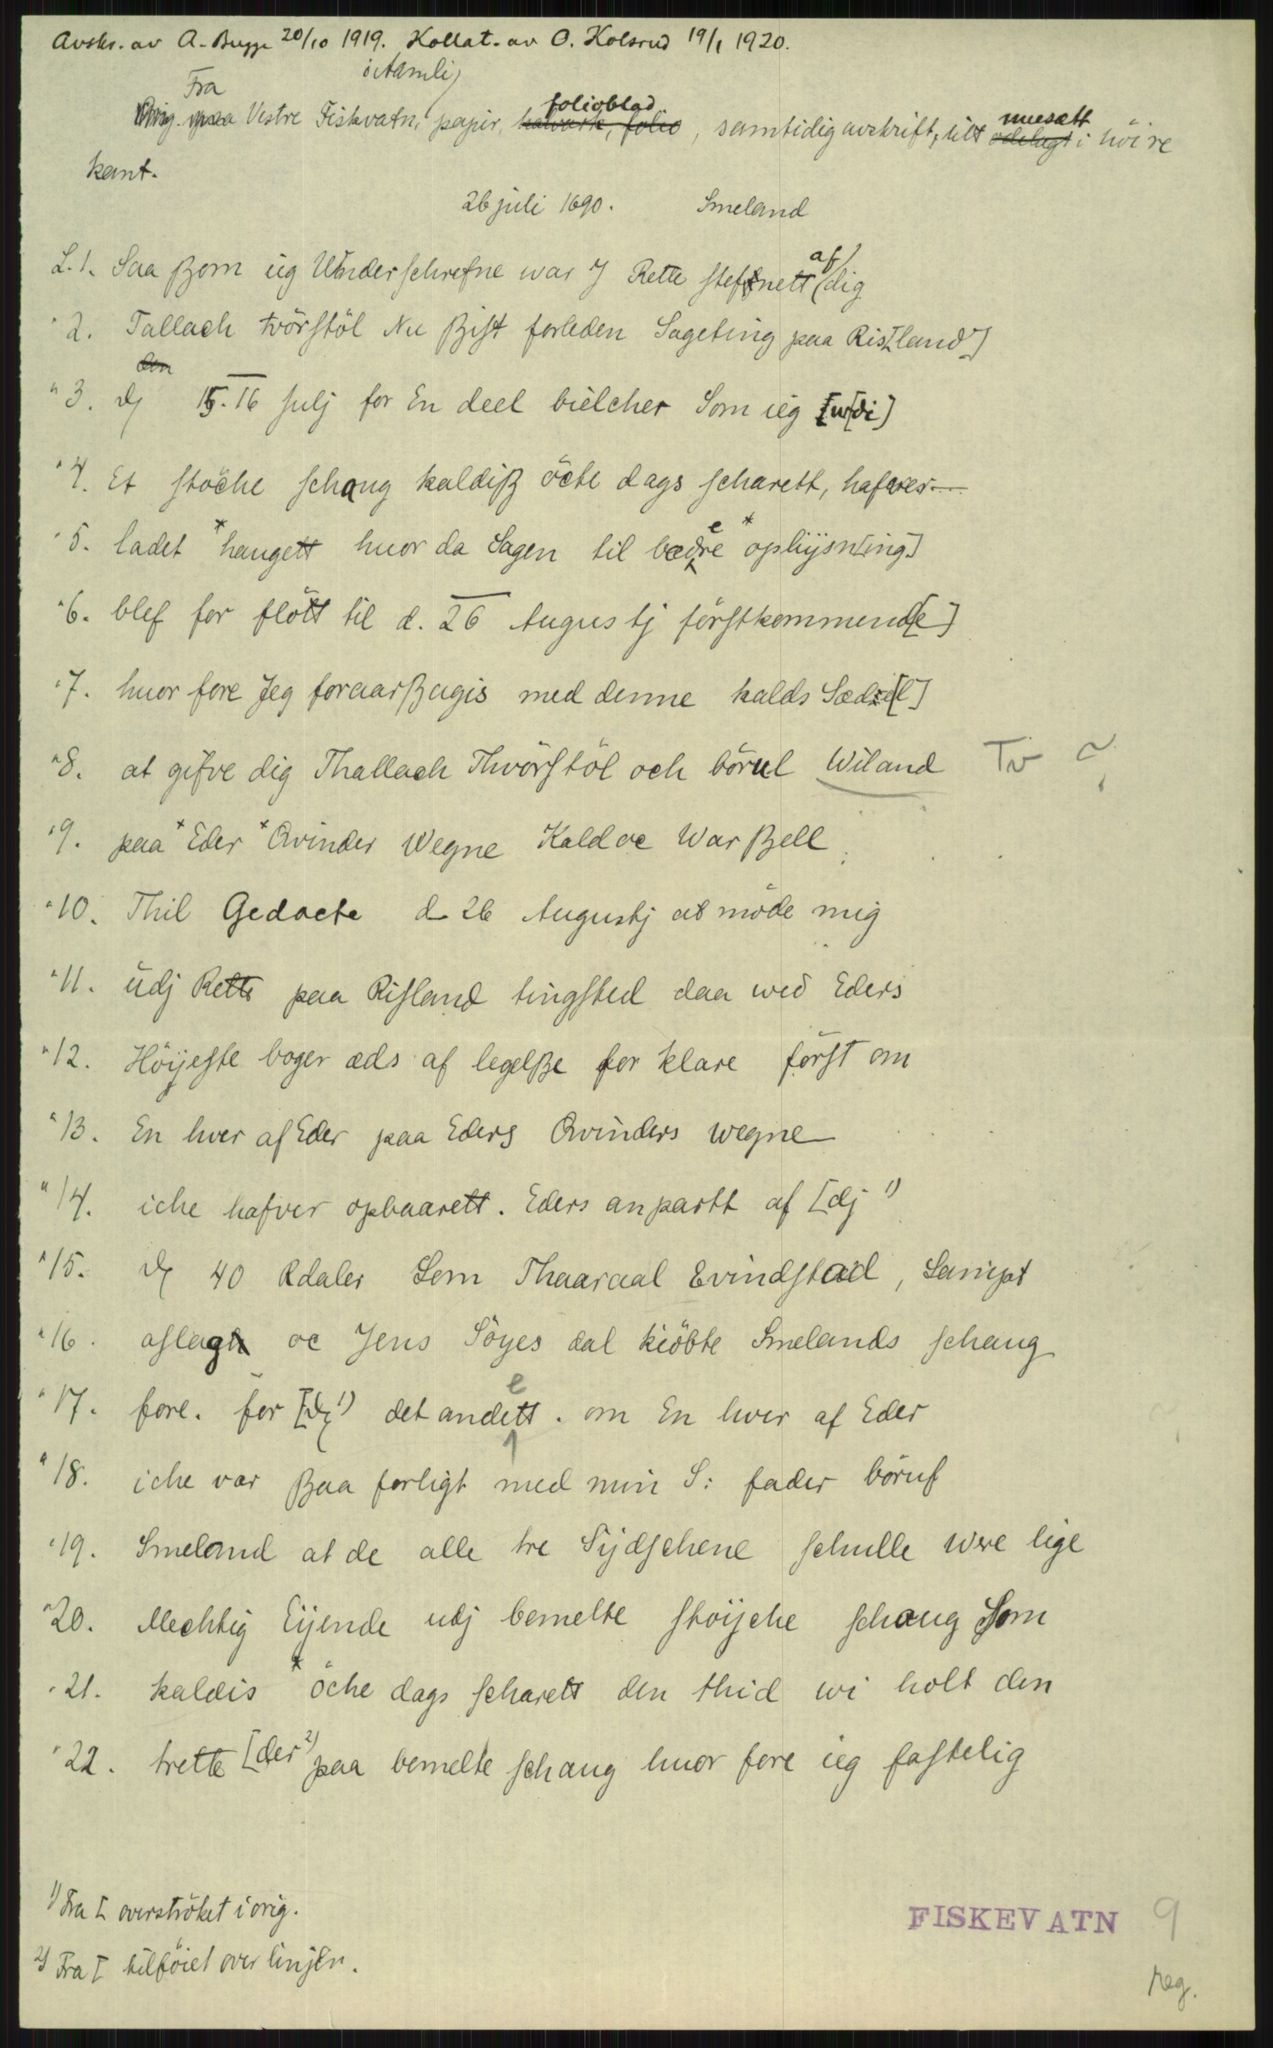 Avskr. av A. Bugge 20/10 1919. Kollat. av O. Kolsrud 19/1 1920.
i Åmli,
Fra
Orig. paa Vestre Fiskvatn, papir, halvark, folio folioblad, samtidig avskrift, litt ödelagt musett i höire
kant.
26 juli 1690. Smeland
L. 1. Saa ßom ieg Underschrefne war J Rette stefnett af dig
" 2. Tallach tvörstöl Nu ßist forleden Sageting paa Ris[land]
den
" 3. d 15. 16 Julj for En deel bielcher Som ieg [udi]
" 4. Et stöche schoug kaldiß öcte dags scharett, hafver
" 5. ladet *hougett huor da Sagen til bædre *oplüysn[ing]
" 6. blef for flött til d. 26 Augustj förstkommend[e]
" 7. huor fore Jeg foraarßagis med denne kalds Sædd[l]
" 8. at gifve dig Thallach Thvörstöl och börul Wiland Tv ?
" 9. paa *Eder *Qvinder Wegne Kald oc War ßell
" 10. Thil Gedacte d 26 Augustj at möde mig
" 11. udj Rette paa Risland tingsted daa wed Eders
" 12. Höijeste boger æds af legelße for klare först om
" 13. En hver af Eder paa Eders Qvinders wegne
" 14. iche hafver opbaarett. Eders anpartt af [dj 1)
" 15. d 40 Rdaler Som Thaaraal Evindstad, Sampt
" 16. aslagh oc Jens Söyes dal kiöbte Smelands schoug
" 17. fore. for [d 1) det andett e . om En hver af Eder
" 18. iche var ßaa forligt med min S: fader böruf
" 19. Smeland at de alle tre Sydschene schulle were lige
" 20. Mechtig Eijende udj bemelte stöijche schoug Som
" 21. kaldis *öche dags scharett den thid wi holt den
" 22. trette [der 2) paa bemelte schoug huor fore ieg fastelig
1) Fra [ overströket i orig.
2) Fra [ tilföiet over linjen.
FISKEVATN 9
reg.